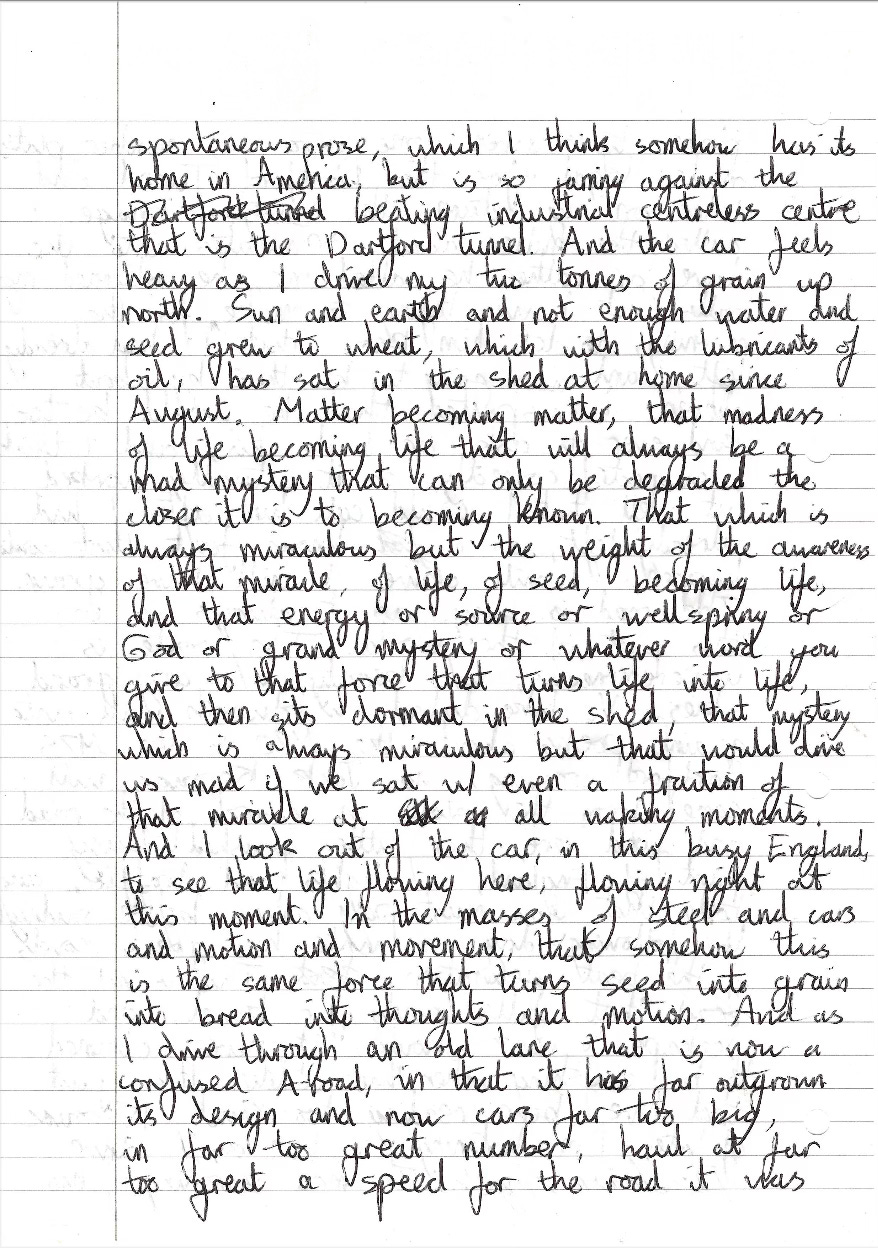 spontaneous prose, which I think somehow has its
home in America, but is so jarring against the
Dartford tunnel beating industrial centreless centre
that is the Dartford tunnel. And the car feels
heavy as I drive my two tonnes of grain up
north. Sun and earth and not enough water and
seed grew to wheat, which with the lubricants of
oil, has sat in the shed at home since
August. Matter becoming matter, that madness
of life becoming life that will always be a
mad mystery that can only be degraded the
closer it is to becoming known. That which is
always miraculous but the weight of the awareness
of that miracle, of life, of seed, becoming life,
and that energy or source or wellspring or
God or grand mystery or whatever word you
give to that force that turns life into life,
and then sits dormant in the shed, that mystery
which is always miraculous but that would drive
us mad if we sat w/ even a fraction of
that miracle at all waking moments.
And I look out of the car, in this busy England,
to see that life flowing here, flowing right at
this moment. In the masses of steel and cars
and motion and movement, that somehow this
is the same force that turns seed into grain
into bread into thoughts and motion. And as
I drive through an old lane that is now a
confused A road, in that it has far outgrown
its design and now cars far too big,
in far too great number, haul at far
too great a speed for the road it was